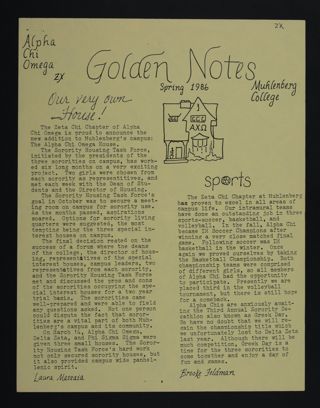 ZX
Alpha
Chi
Omega
ZX
Golden Notes
Spring 1986
Muhlenberg
College
Our very own
House!
ΑΧΩ
The Zeta Chi Chapter of Alpha
Chi Omega is proud to announce the
new addition to Muhlenberg's campus:
The Alpha Chi Omega House.
The Sorority Housing Task Force,
initiated by the presidents of the
three sororities on campus, has work-
ed six long months on a very exciting
project. Two girls were chosen from
each sorority as representitives, and
met each week with the Dean of Stu-
dents and the Director of Housing.
The Sorority Housing Task Force's
goal in October was to secure a meet-
ing room on campus for sorority use.
As the months passed, aspirations
soared. Options for sorority living
quarters were explored, the most
tempting being the three special in-
terest houses on campus.
The final decision rested on the
success of a forum where the deans
of the college, the director of hous-
ing, representatives of the special
interest housing, campus leaders, two
representatives from each sorority,
and the Sorority Housing Task Force
met and discussed the pros and cons
of the sororities occupying the spe-
cial interest houses for a two year
trial basis. The sororities came
well-prepared and were able to field
any questions asked. Not one person
could dispute the fact that soror-
ities are a vital part of both Muh-
lenberg's campus and its community.
On March 14, Alpha Chi Omega,
Delta Zeta, and Phi Sigma Sigma were
given three small houses. The Soror-
ity Housing Task Force's hard work
not only secured sorority houses, but
it also provided campus wide panhel-
lenic spirit.
Laura
sports
The Zeta Chi Chapter at Muhlenberg
has proven to excel in all areas of
campus life. Our intramural teams
have done an outstanding job in three
sports-soccer, basketball, and
volleyball. In the fall, Alpha Chi
became IM Soccer Champions after
winning a very close matched final
game. Following soccer was IM
basketball in the winter. Once
again we proved ourselves by taking
the Basketball Championship. Both
championship teams were comprised
of different girls, so all members
of Alpha Chi had the opportunity
to participate. Presently, we are
placed third in the volleyball
tournament, but there is still hope
for a comeback.
Alpha Chis are anxiously await-
ing the Third Annual Sorority De-
cathlon also known as Greek Day.
We have no doubt that we will re-
main the championship title which
we unfortunately lost to Delta Zeta
last year. Although there will be
much competition, Greek Day is a
time for the three sororities to
come together and enjoy a day of
fun and games.
Brooke Feldman